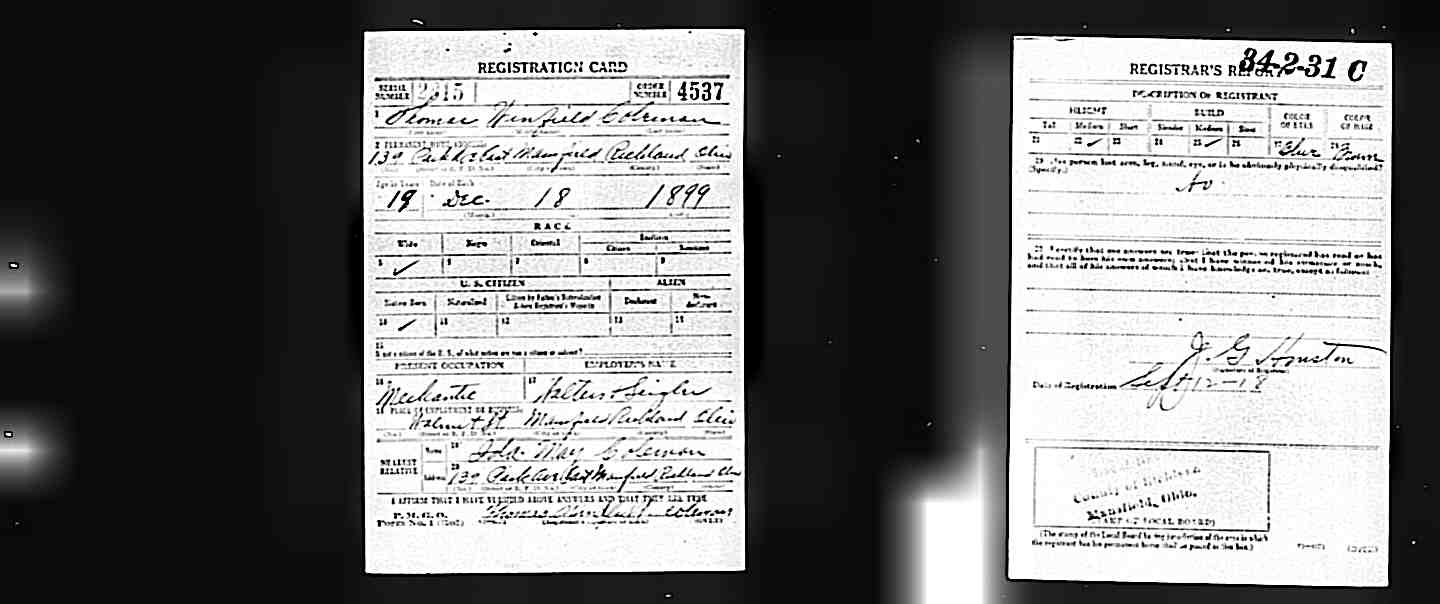 REGISTRATION CARD
SERIAL NUMBER 2315 ORDER NUMBER 4537
1 Thomas Winfield Coleman
(First name) (Middle name) (Last name)
2 PERMANENT HOME ADDRESS:
139 Park Av East Mansfield Richland Ohio
Age in Years Date of Birth
19 Dec. 18 1899
RACE
White Negro Oriental Indian
Citizen
5 ✓ 6 7 8 9
U. S. CITIZEN ALIEN
Native Born Naturalized Declarant Non-declarant
10 ✓ 11 12 13 14
15
If not a citizen of the U. S., of what nation are you a citizen or subject?
PRESENT OCCUPATION EMPLOYER'S NAME
16 Mechanic 17 Walters + Seigler
18 PLACE OF EMPLOYMENT OR BUSINESS:
Walnut St. Mansfield Richland Ohio
NEAREST RELATIVE
Name 19 Ida May Coleman
Address 20 139 Park Av East Mansfield Richland Ohio
I AFFIRM THAT I HAVE VERIFIED ABOVE ANSWERS AND THAT THEY ARE TRUE
P. M. G. O.
Form No. 1 (Red) Thomas Winfield Coleman
34-2-31 C
REGISTRAR'S REPORT
DESCRIPTION OF REGISTRANT
HEIGHT BUILD COLOR OF EYES COLOR OF HAIR
Tall Medium Short Slender Medium Stout
21 22 ✓ 23 24 25 ✓ 26 27 Blue 28 Brown
29 Has person lost arm, leg, hand, eye, or is he obviously physically disqualified?
(Specify.)
No.
30 I certify that my answers are true; that the person registered has read or has
had read to him his own answers; that I have witnessed his signature or mark,
and that all of his answers of which I have knowledge are true, except as follows:
J. G. Houston
(Signature of Registrar)
Date of Registration Sept 12-18
County of Richland
Mansfield, Ohio.
(STAMP OF LOCAL BOARD)
(The stamp of the Local Board having jurisdiction of the area in which
the registrant has his permanent home shall be placed in this box.)